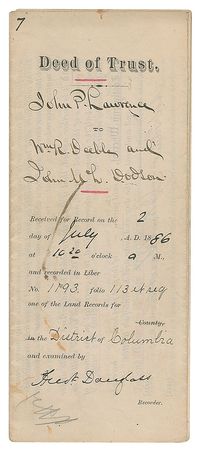 7
Deed of Trust.
John P. Lawrence
TO
Wm R. Deeble and
John McL. Dodson
Received for Record on the 2
day of July A. D. 1886
at 10 20 o'clock a M.,
and recorded in Liber
No. 1793 folio 113 et seq
one of the Land Records for
County:
in the District of Columbia
and examined by
Fredk Douglass
Recorder.